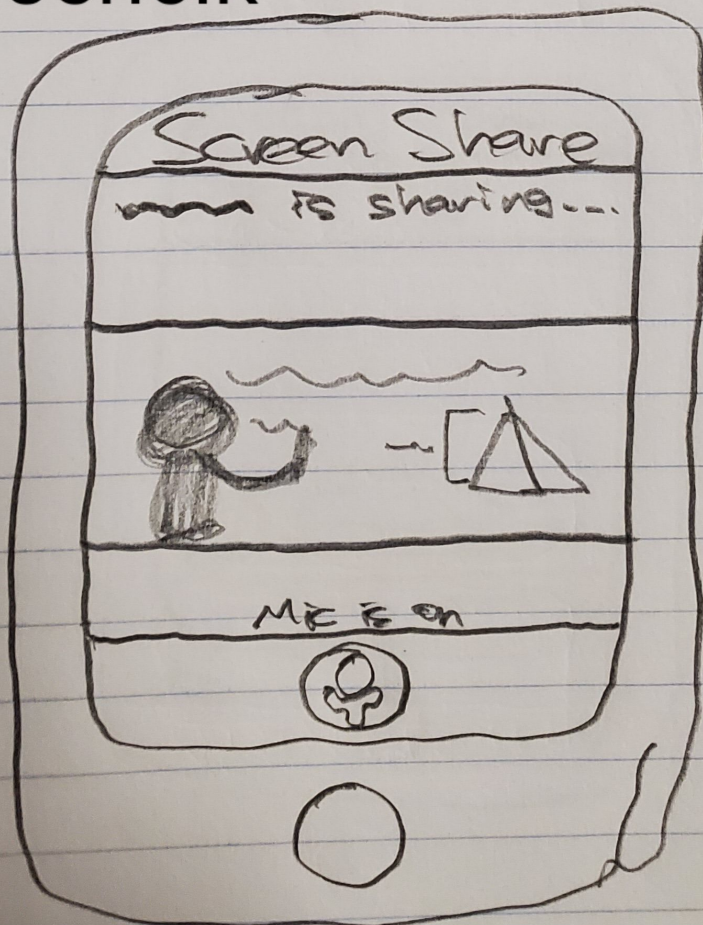 Screen Share
is sharing...
Mic is on